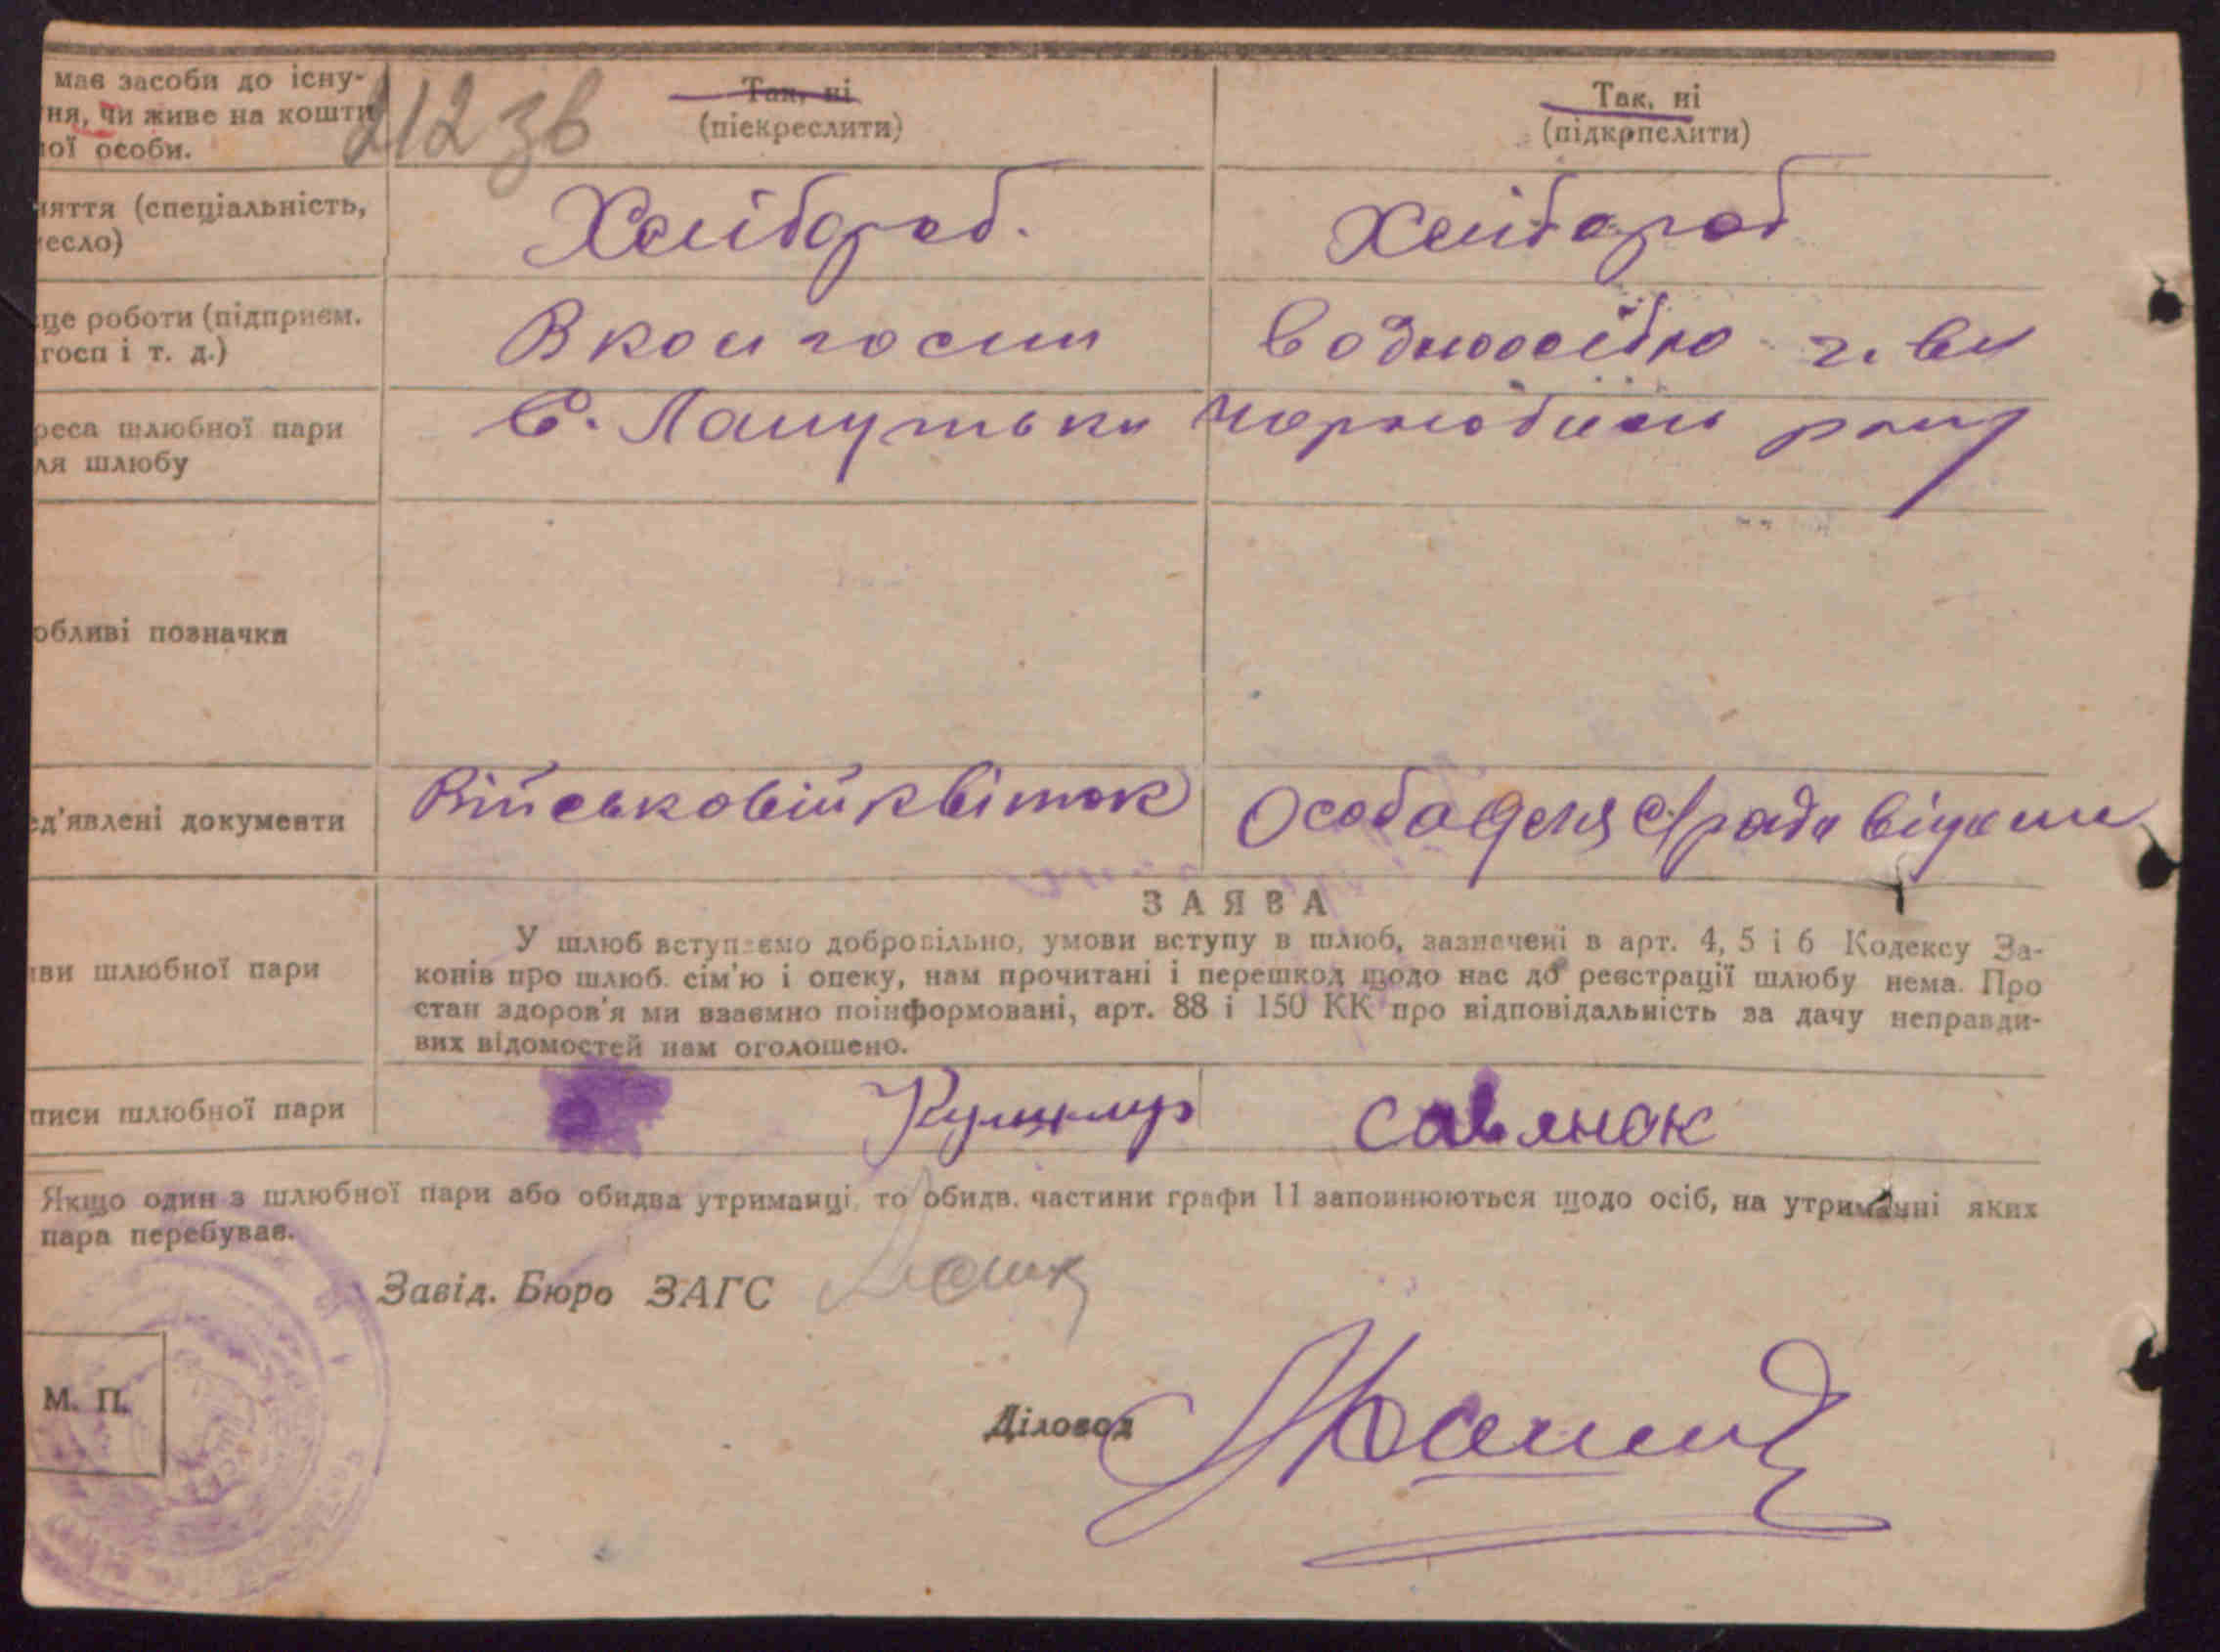 має засоби до існу-
ня, чи живе на кошти
ої особи.
212 зв
Так, ні
(піекреслити)
Так, ні
(підкрпелити)
няття (спеціальність,
есло)
Хлібороб.
Хлібороб
це роботи (підприєм.
госп і т. д.)
В колгоспи
реса шлюбної пари
ля шлюбу
С. Лапутьки Чорнобиль
обливі позначки
ед'явлені документи
Військовій квіток
Особа
ЗАЯВА
У шлюб вступаємо добровільно, умови вступу в шлюб, зазначені в арт. 4, 5 і 6 Кодексу За-
конів про шлюб. сім'ю і опеку, нам прочитані і перешкод щодо нас до реєстрації шлюбу нема. Про
стан здоров'я ми взаємно поінформовані, арт. 88 і 150 КК про відповідальність за дачу неправди-
вих відомостей нам оголошено.
яви шлюбної пари
писи шлюбної пари
Кушнир
савянок
Якщо один з шлюбної пари або обидва утриманці, то обидв. частини графи 11 заповнюються щодо осіб, на утриманні яких
пара перебуває.
Завід. Бюро ЗАГС
М. П.
Діловод